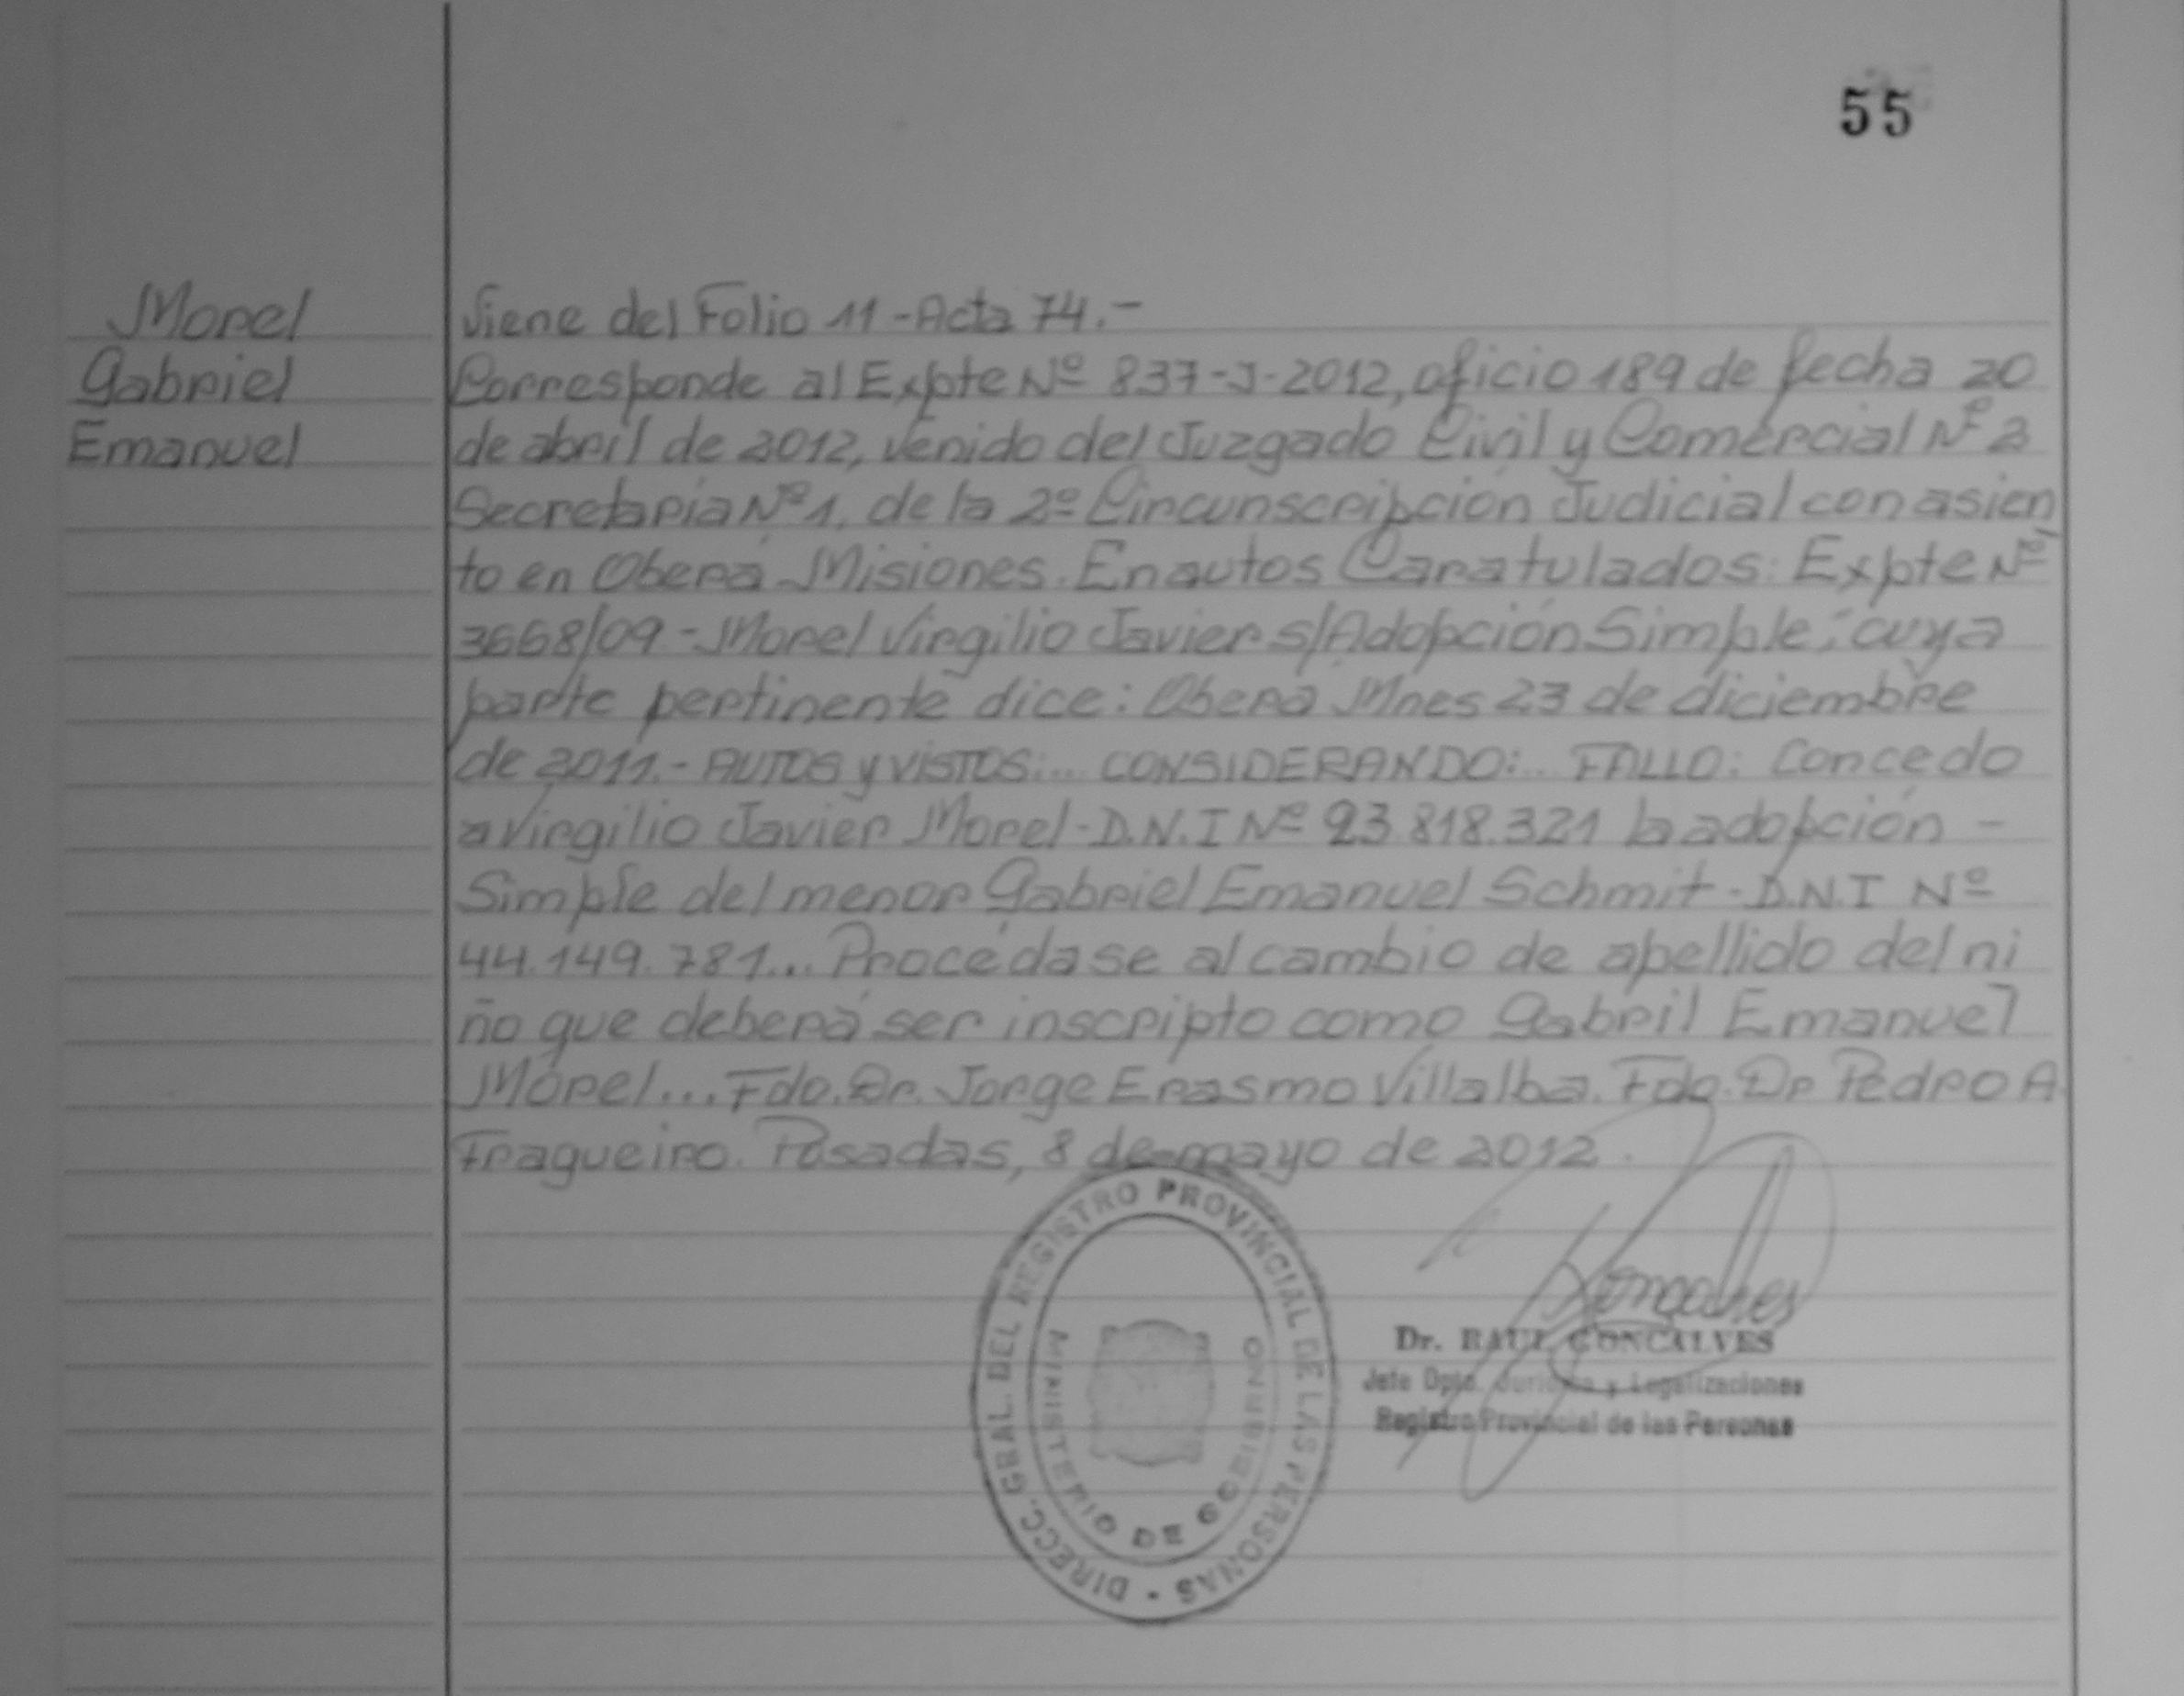 55
Morel
Gabriel
Emanuel
Viene del Folio 11 - Acta 74.-
Corresponde al Expte Nº 837-J-2012, oficio 189 de fecha 20
de abril de 2012, venido del Juzgado Civil y Comercial Nº 2
Secretaria Nº 1, de la 2º Circunscripción Judicial con asien
to en Oberá Misiones. En autos Caratulados: Expte Nº
3668/09 - Morel Virgilio Javier s/Adopción Simple", cuya
parte pertinente dice: Oberá Mnes 23 de diciembre
de 2011.- AUTOS y VISTOS:... CONSIDERANDO:.. FALLO: Concedo
a Virgilio Javier Morel - D.N.I Nº 23.818.321 la adopción -
Simple del menor Gabriel Emanuel Schmit - D.N.I Nº
44.149.781... Procédase al cambio de apellido del ni
ño que deberá ser inscripto como Gabril Emanuel
Morel... Fdo. Dr. Jorge Erasmo Villalba. Fdo. Dr Pedro A
Fragueiro. Posadas, 8 de mayo de 2012.
DIRECC. GRAL. DEL REGISTRO PROVINCIAL DE LAS PERSONAS -
MINISTERIO DE GOBIERNO
Goncalves
Dr. RAUL GONCALVES
Jefe Dpto. Jurídico y Legalizaciones
Registro Provincial de las Personas